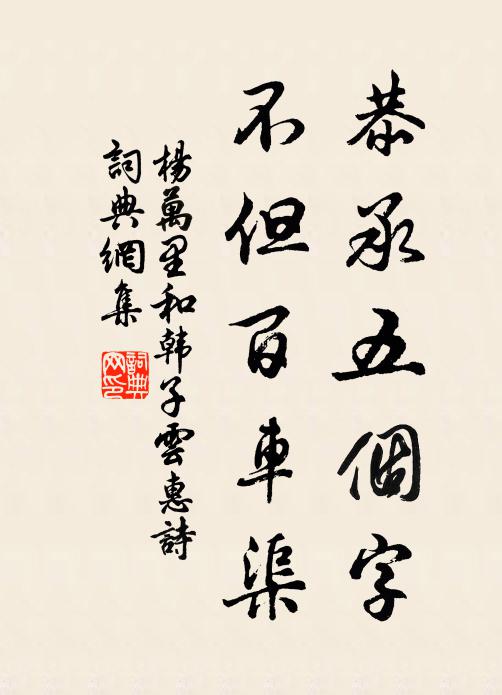 恭承五個字
不但百車渠
楊萬里和韩子雲惠詩
詞典網集
詞典網印